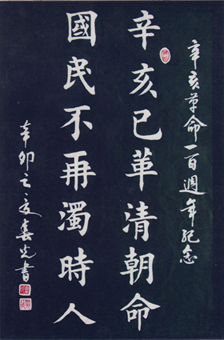 辛亥革命一百週年紀念
辛亥已革清朝命
國民不再濁時人
辛卯之夏
書